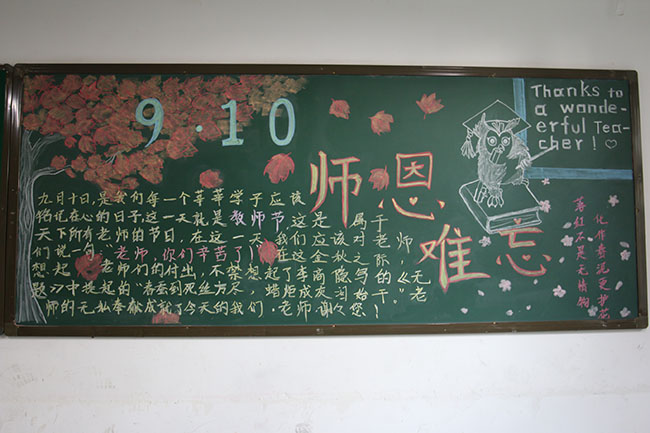 9·10
Thanks to
a wonde-
erful Tea-
cher!
师恩
难忘
九月十日,是我们每一个莘莘学子应该
铭记在心的日子,这一天就是教师节,这是属于
天下所有老师的节日,在这一天我们应该对老师
们说一句:"老师,你们辛苦了!"在这金秋之际,
想起老师们的付出,不禁想起了李商隐写的《无
题》中提起的"春蚕到死丝方尽,蜡炬成灰泪始干"老
师的无私奉献成就了今天的我们.老师谢谢您!
落红不是无植物
化作春泥更护花